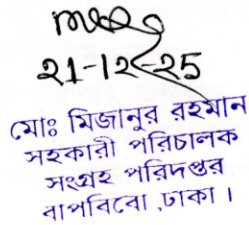 21-12-25
মোঃ মিজানুর রহমান
সহকারী পরিচালক
সংগ্রহ পরিদপ্তর
বাপবিবো ,ঢাকা।